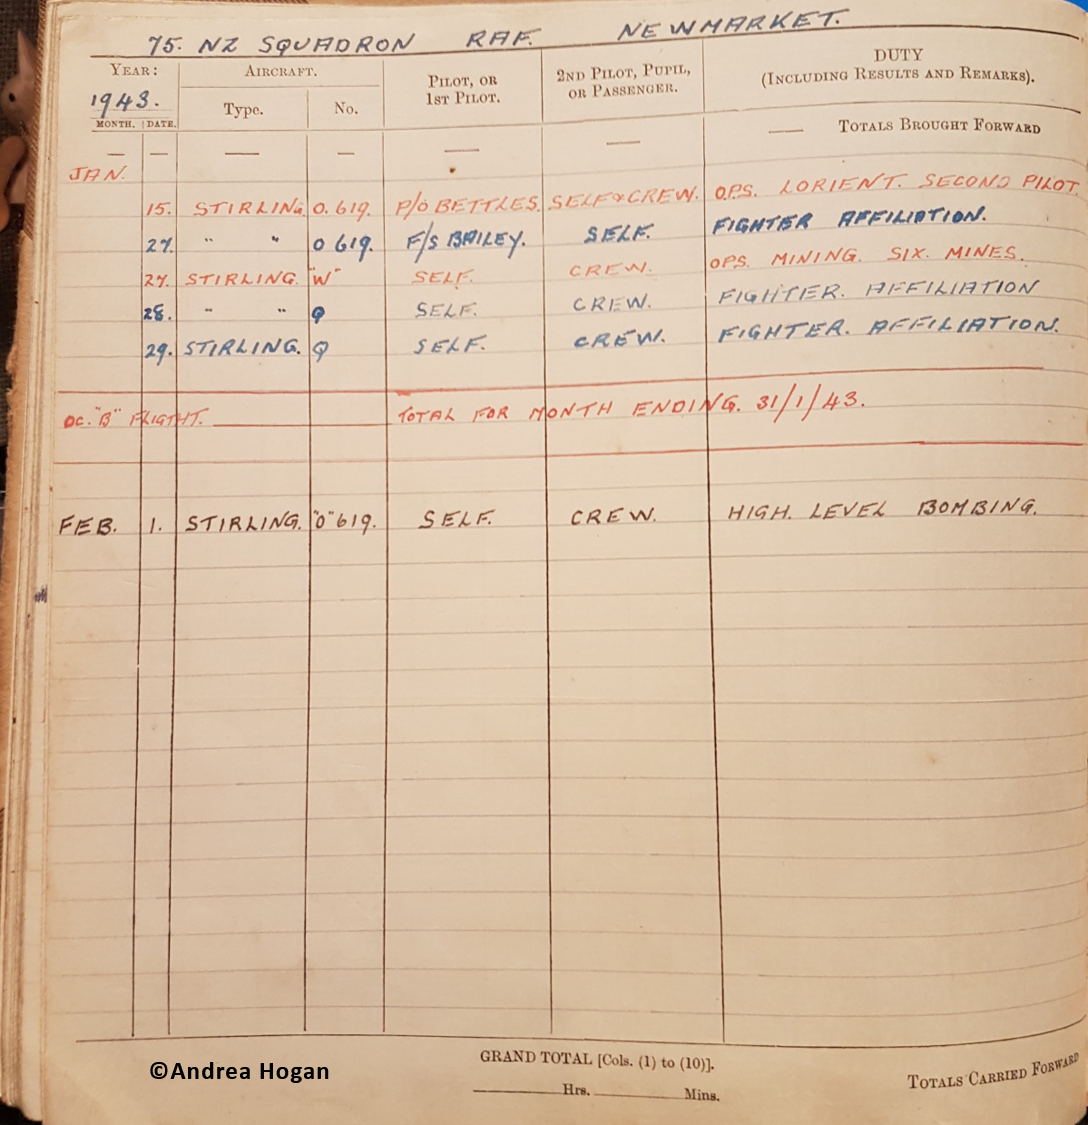 75. NZ SQUADRON RAF. NEWMARKET.
YEAR: AIRCRAFT. PILOT, OR 1ST PILOT. 2ND PILOT, PUPIL, OR PASSENGER. DUTY (INCLUDING RESULTS AND REMARKS).
1943. Type. No.
MONTH. DATE.
— — — — — — — TOTALS BROUGHT FORWARD
JAN.
15. STIRLING O. 619. P/O BETTLES. SELF & CREW. OPS. LORIENT. SECOND PILOT.
27. " " O 619. F/S BAILEY. SELF. FIGHTER AFFILIATION.
27. STIRLING. "W" SELF. CREW. OPS. MINING. SIX. MINES.
28. " " Q SELF. CREW. FIGHTER. AFFILIATION
29. STIRLING. Q SELF. CREW. FIGHTER. AFFILIATION.
OC. "B" FLIGTHT. TOTAL FOR MONTH ENDING. 31/1/43.
FEB. 1. STIRLING. "O" 619. SELF. CREW. HIGH. LEVEL BOMBING.
GRAND TOTAL [Cols. (1) to (10)].
Hrs. Mins.
TOTALS CARRIED FORWARD
©Andrea Hogan